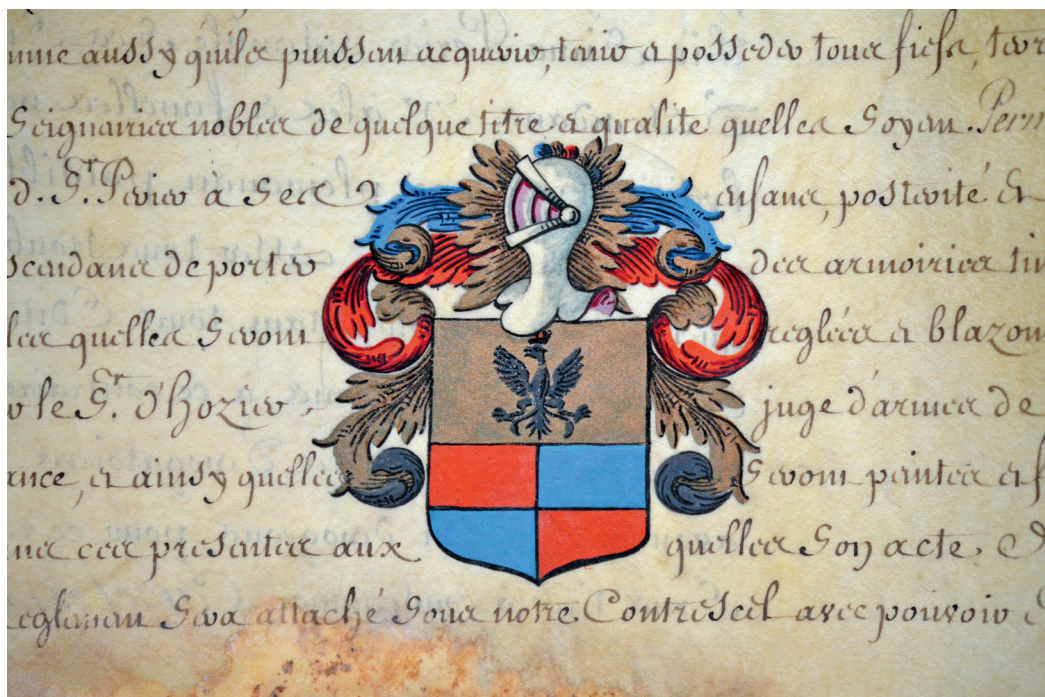 mme aussy quils puissent acquerir, tenir et posseder tous fiefs, terr
Seigneuries nobles de quelque titre et qualité quelles Soyent. Perm
d. Sr. Perier à Ses enfans, posterité et
scendans de porter des armoiries tim
les quelles Seront reglées et blazon
r le Sr. d'hozier, juge d'armes de
ance, et ainsy quelles Seront peintes et f
ces presentes aux quelles Son acte, d
eglement Sera attaché Sous notre Contrescel avec pouvoir